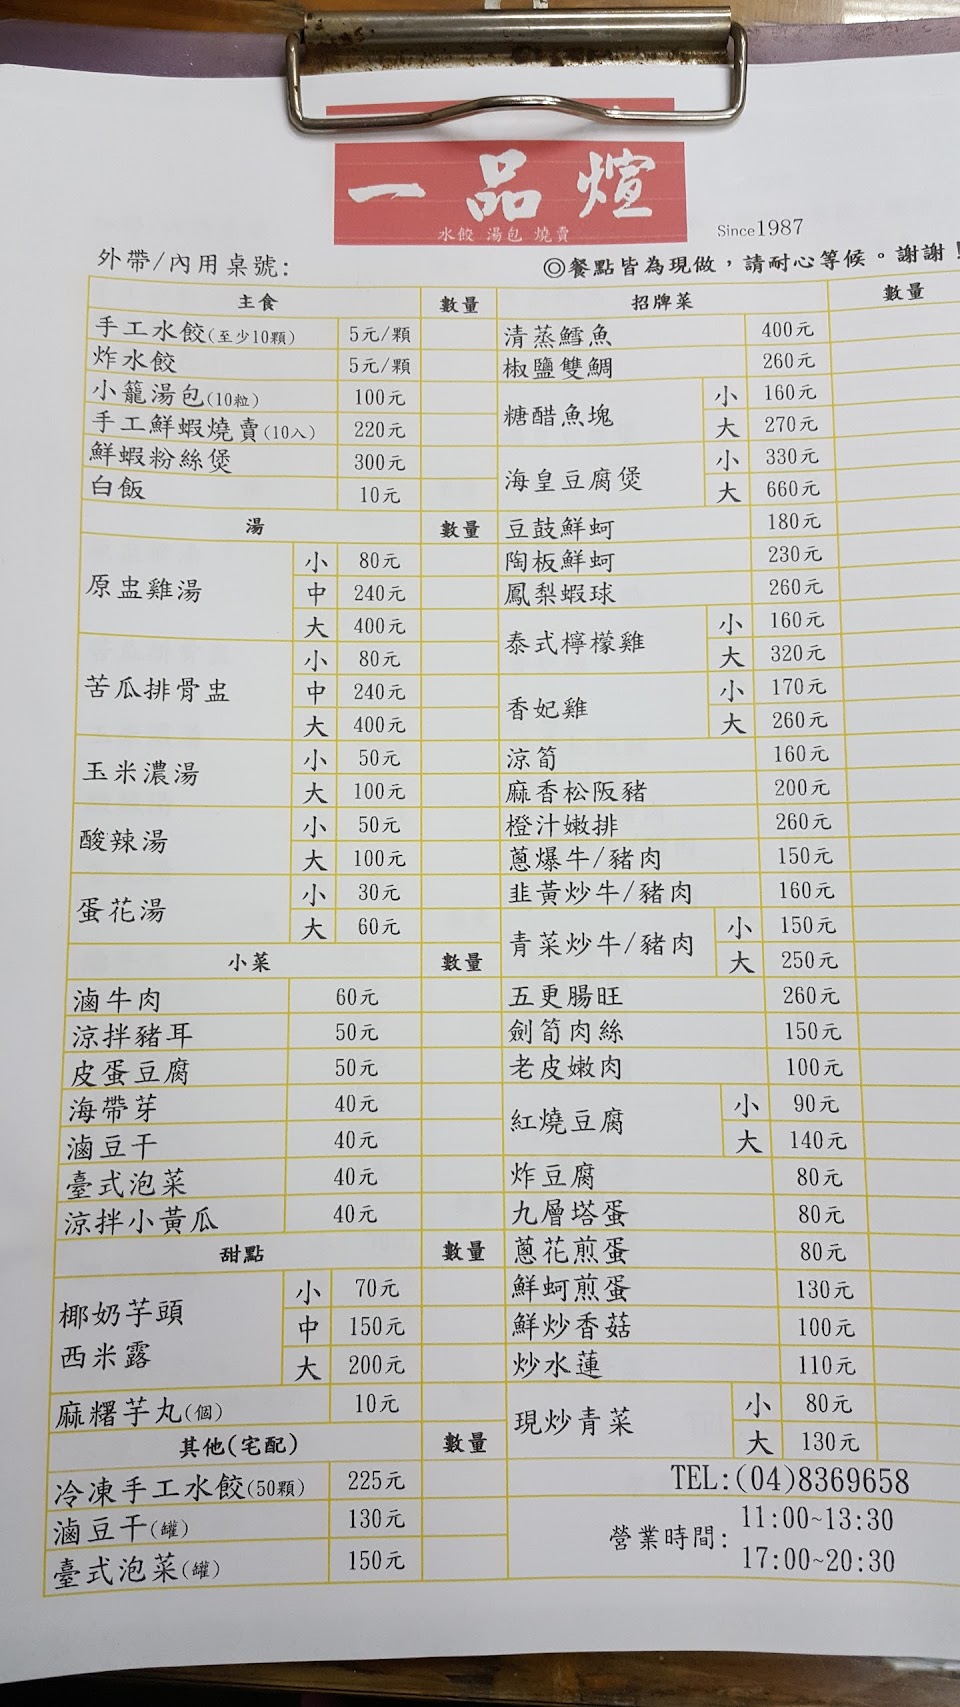 一品煊
水餃 湯包 燒賣
Since1987
外帶/內用桌號:
◎餐點皆為現做，請耐心等候。謝謝!
主食 數量
手工水餃(至少10顆) 5元/顆
炸水餃 5元/顆
小籠湯包(10粒) 100元
手工鮮蝦燒賣(10入) 220元
鮮蝦粉絲煲 300元
白飯 10元
湯 數量
原盅雞湯 小 80元
中 240元
大 400元
苦瓜排骨盅 小 80元
中 240元
大 400元
玉米濃湯 小 50元
大 100元
酸辣湯 小 50元
大 100元
蛋花湯 小 30元
大 60元
小菜 數量
滷牛肉 60元
涼拌豬耳 50元
皮蛋豆腐 50元
海帶芽 40元
滷豆干 40元
臺式泡菜 40元
涼拌小黃瓜 40元
甜點 數量
椰奶芋頭
西米露 小 70元
中 150元
大 200元
麻糬芋丸(個) 10元
其他(宅配) 數量
冷凍手工水餃(50顆) 225元
滷豆干(罐) 130元
臺式泡菜(罐) 150元
招牌菜 數量
清蒸鱈魚 400元
椒鹽雙鯛 260元
糖醋魚塊 小 160元
大 270元
海皇豆腐煲 小 330元
大 660元
豆鼓鮮蚵 180元
陶板鮮蚵 230元
鳳梨蝦球 260元
泰式檸檬雞 小 160元
大 320元
香妃雞 小 170元
大 260元
涼筍 160元
麻香松阪豬 200元
橙汁嫩排 260元
蔥爆牛/豬肉 150元
韭黃炒牛/豬肉 160元
青菜炒牛/豬肉 小 150元
大 250元
五更腸旺 260元
劍筍肉絲 150元
老皮嫩肉 100元
紅燒豆腐 小 90元
大 140元
炸豆腐 80元
九層塔蛋 80元
蔥花煎蛋 80元
鮮蚵煎蛋 130元
鮮炒香菇 100元
炒水蓮 110元
現炒青菜 小 80元
大 130元
TEL:(04)8369658
營業時間: 11:00~13:30
17:00~20:30